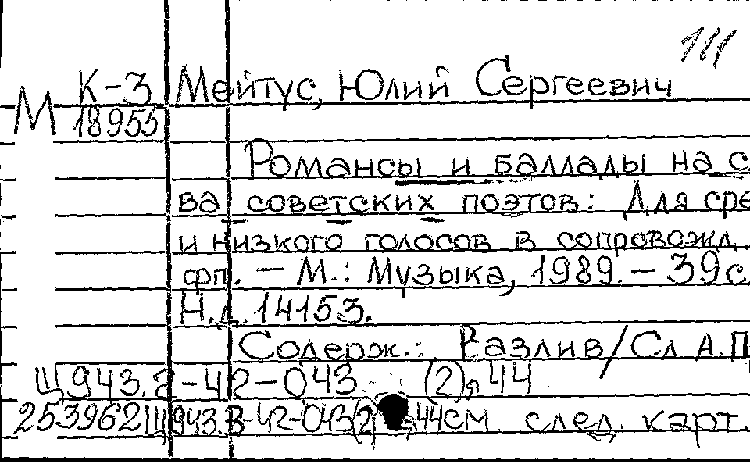 М К-3 Мейтус, Юлий Сергеевич
18955
Романсы и баллады на с
ва советских поэтов: Для сре
и низкого голосов в сопровожд.
фп. – М.: Музыка, 1989. – 39с.
Н.д. 14153.
Содерж.: Разлив/Сл А.П
Щ943.2-42-043 (2)я44
253962 Щ943.2-42-043(2) 44 см. след. карт.